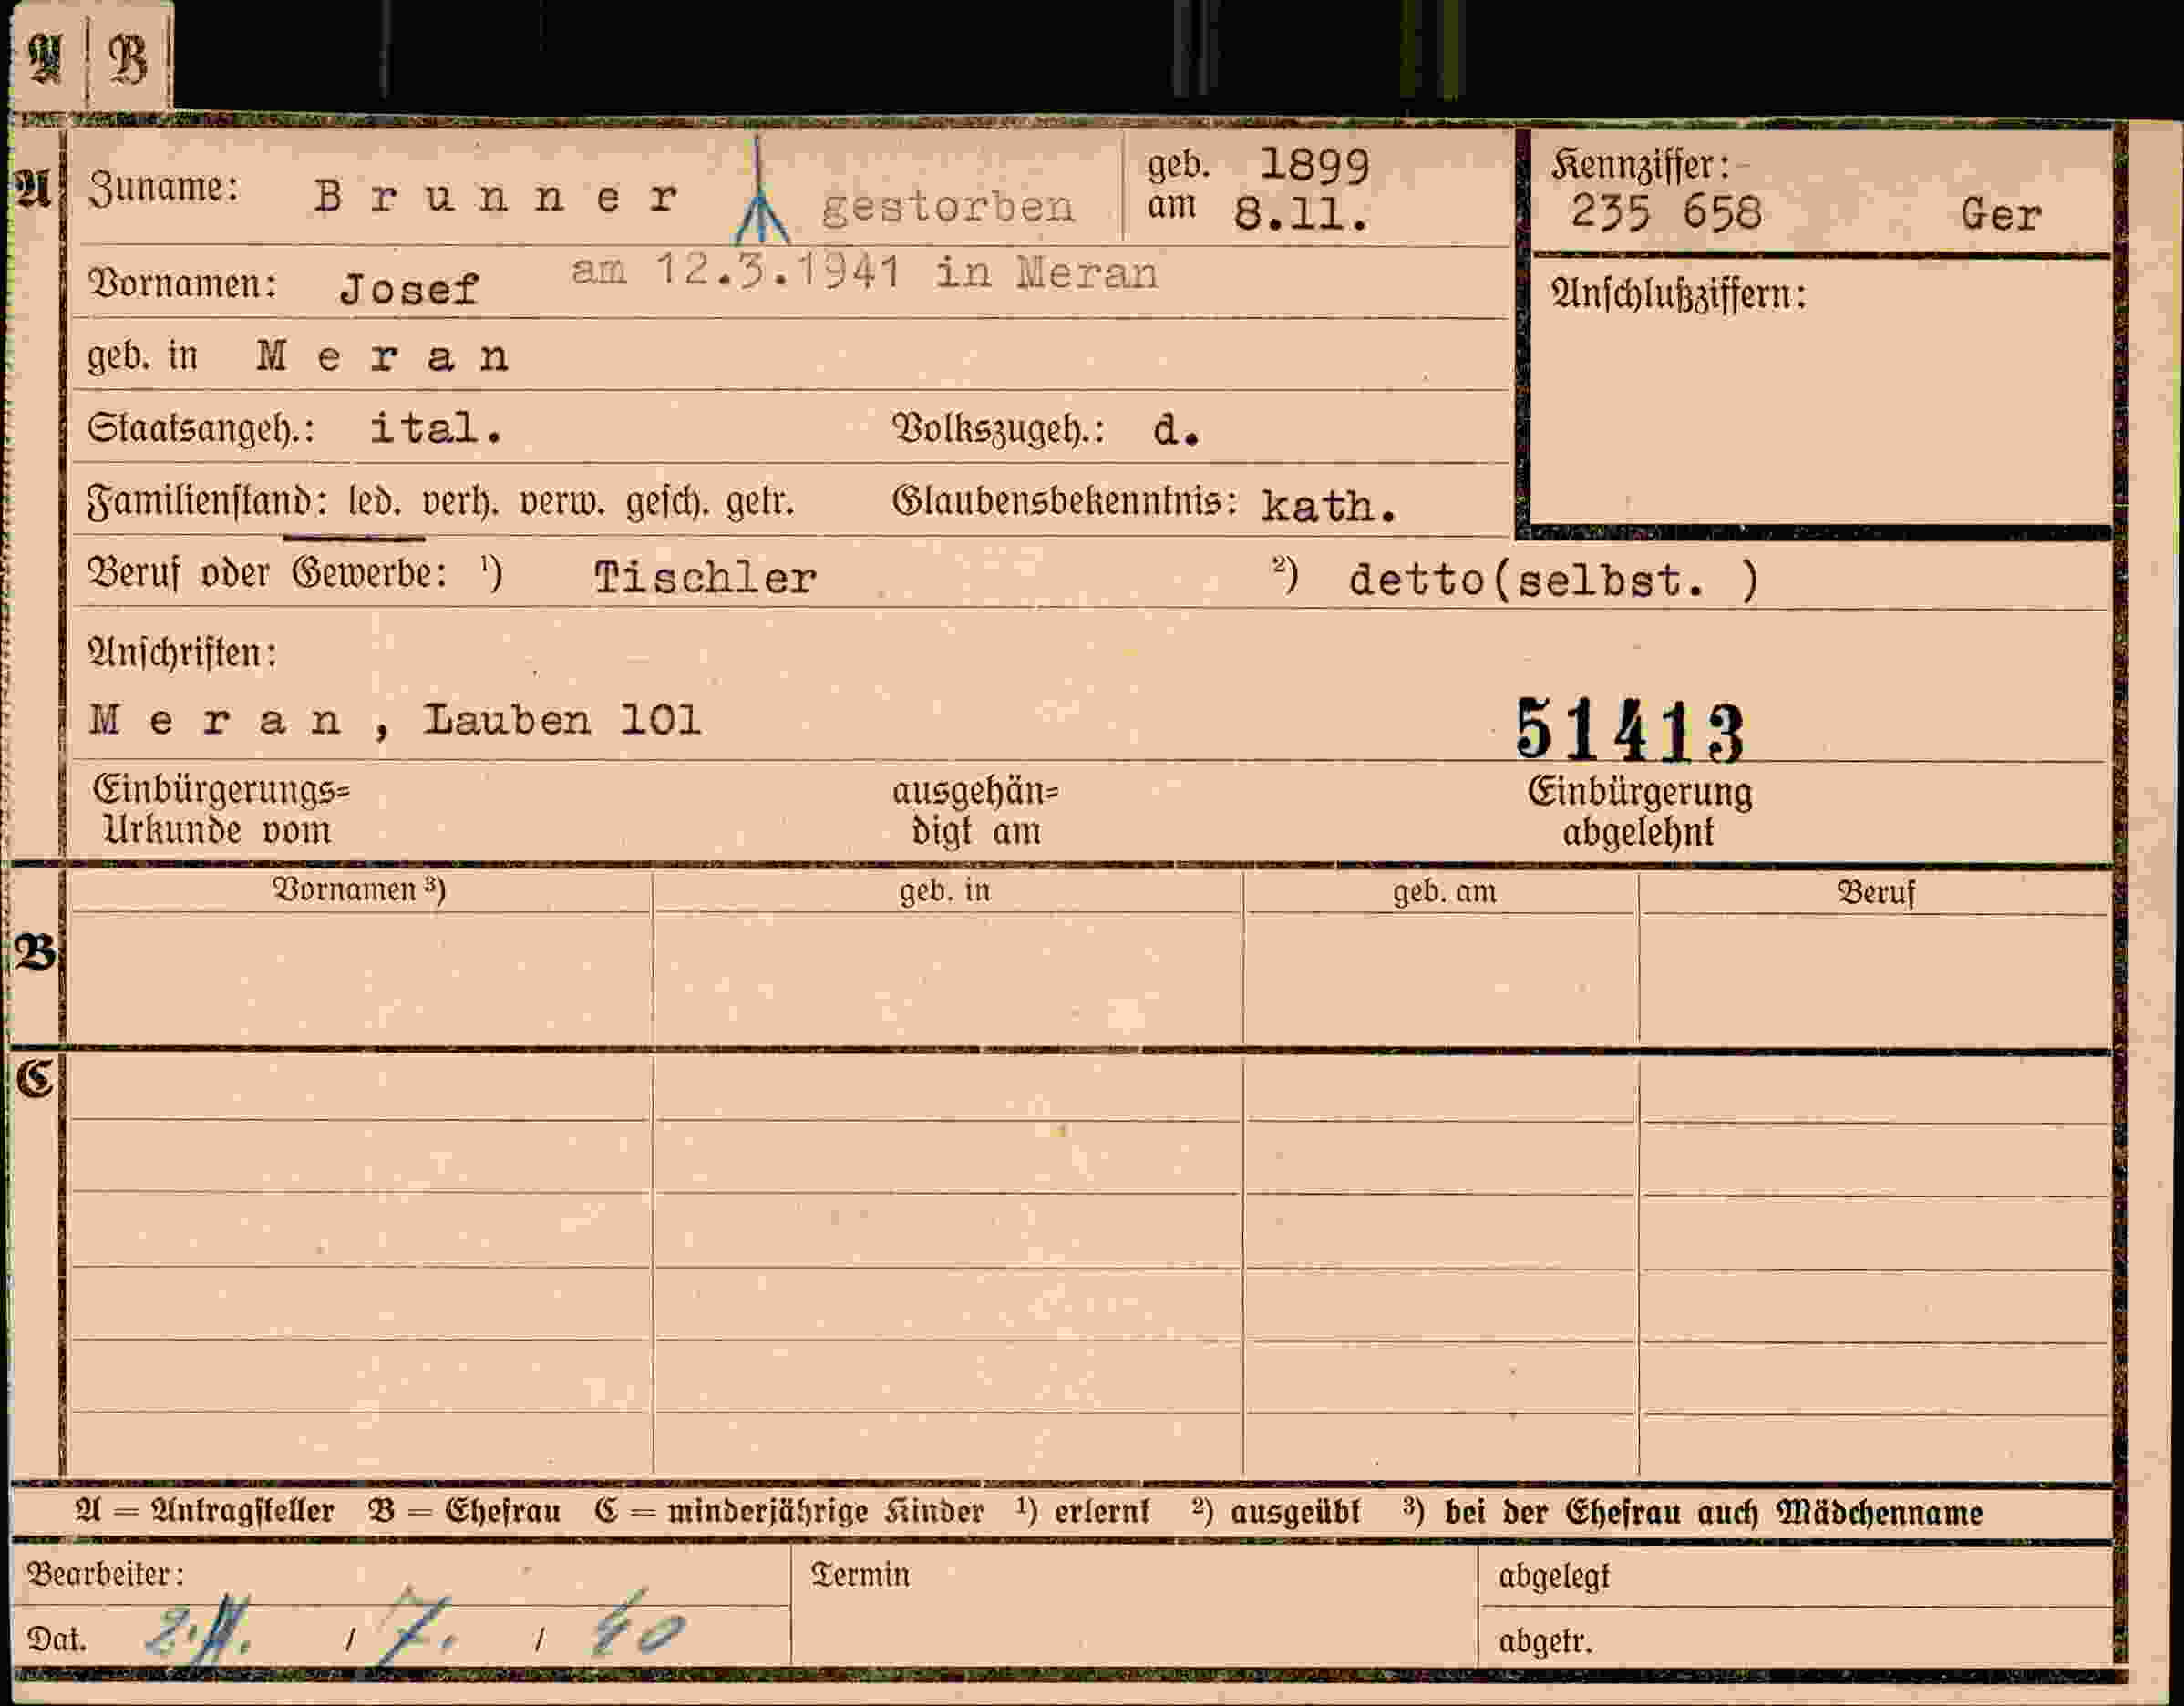 A B
A Zuname: Brunner gestorben geb. 1899 am 8.11. Kennziffer: 235 658 Ger
Vornamen: Josef am 12.3.1941 in Meran Anschlußziffern:
geb. in Meran
Staatsangeh.: ital. Volkszugeh.: d.
Familienstand: led. verh. verw. gesch. getr. Glaubensbekenntnis: kath.
Beruf oder Gewerbe: ¹) Tischler ²) detto(selbst. )
Anschriften:
Meran, Lauben 101 51413
Einbürgerungs= ausgehän= Einbürgerung
Urkunde vom digt am abgelehnt
Vornamen ³) geb. in geb. am Beruf
B
C
A = Antragsteller B = Ehefrau C = minderjährige Kinder ¹) erlernt ²) ausgeübt ³) bei der Ehefrau auch Mädchenname
Bearbeiter: Termin abgelegt
Dat. / 7. / 40 abgetr.